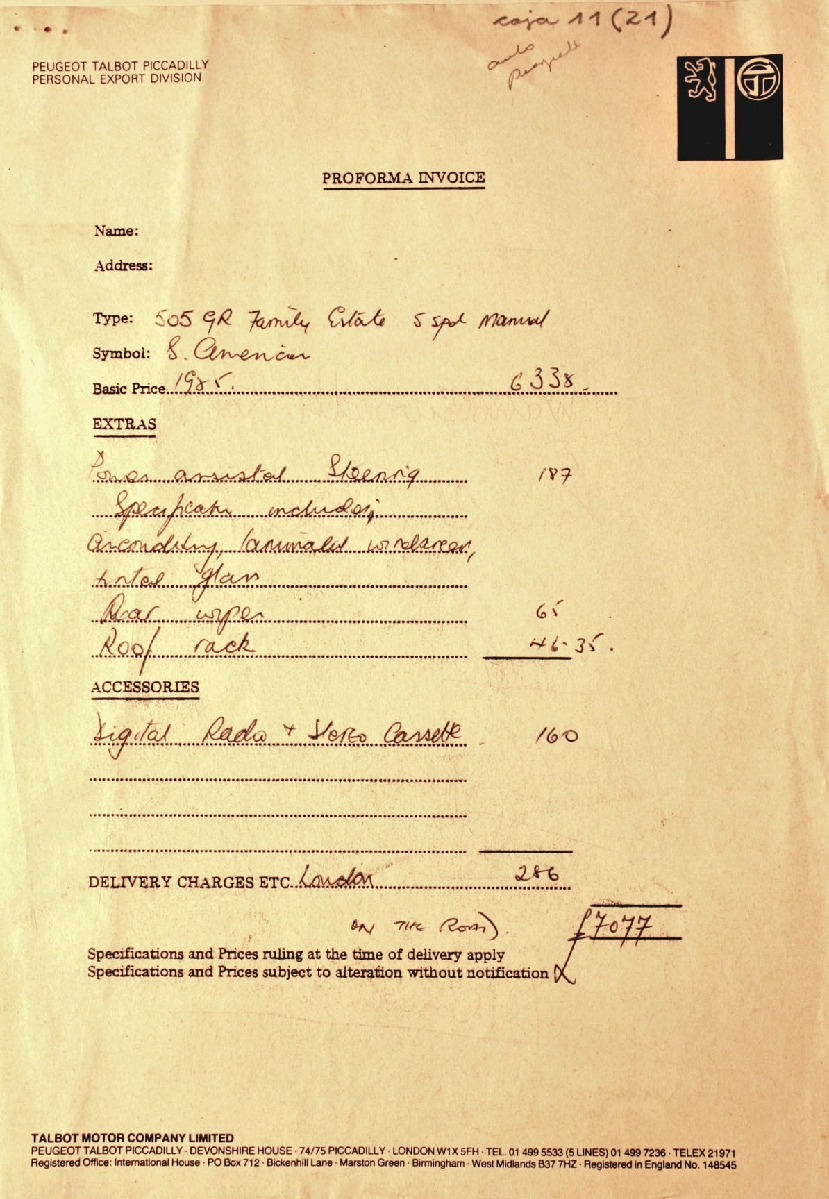 caja 11 (21)
auto
Peugeot
PEUGEOT TALBOT PICCADILLY
PERSONAL EXPORT DIVISION
PROFORMA INVOICE
Name:
Address:
Type: 505 GR Family Estate 5 spd Manual
Symbol: S. American
Basic Price 1985. 6338.
EXTRAS
Power assisted Steering 187
Specificatn includes;
airconditing, laminated windscreen,
tinted glass
Rear wiper 65
Roof rack 46-35.
ACCESSORIES
Digital Radio + Stereo Cassette 160
DELIVERY CHARGES ETC. London 286
ON THE ROAD). £7077
Specifications and Prices ruling at the time of delivery apply
Specifications and Prices subject to alteration without notification
TALBOT MOTOR COMPANY LIMITED
PEUGEOT TALBOT PICCADILLY · DEVONSHIRE HOUSE · 74/75 PICCADILLY · LONDON W1X 5FH · TEL. 01 499 5533 (5 LINES) 01 499 7236 · TELEX 21971
Registered Office: International House · PO Box 712 · Bickenhill Lane · Marston Green · Birmingham · West Midlands B37 7HZ · Registered in England No. 148545